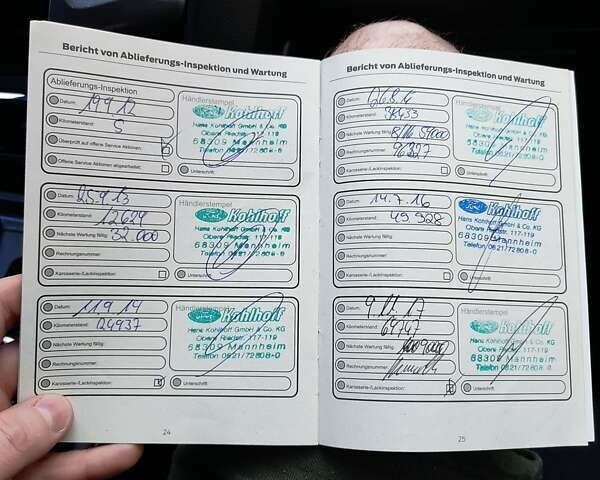 Bericht von Ablieferungs-Inspektion und Wartung
Ablieferungs-Inspektion
Datum: 19.9.12
Kilometerstand: 5
Überprüft auf offene Service Aktionen:
Offene Service Aktionen abgearbeitet:
Händlerstempel
Ford Kohlhoff
Hans Kohlhoff GmbH & Co. KG
Obere Riedstr. 117-119
68309 Mannheim
Telefon 0621/72808-0
Unterschrift:
Datum: 25.9.13
Kilometerstand: 12629
Nächste Wartung fällig: 32.000
Rechnungsnummer:
Karosserie-/Lackinspektion:
Händlerstempel
Ford Kohlhoff
Hans Kohlhoff GmbH & Co. KG
Obere Riedstr. 117-119
68309 Mannheim
Telefon 0621/72808-0
Unterschrift:
Datum: 11.9.14
Kilometerstand: 24937
Nächste Wartung fällig:
Rechnungsnummer:
Karosserie-/Lackinspektion:
Händlerstempel
Ford Kohlhoff
Hans Kohlhoff GmbH & Co. KG
Obere Riedstr. 117-119
68309 Mannheim
Telefon 0621/72808-0
Unterschrift:
24
Bericht von Ablieferungs-Inspektion und Wartung
Datum:
Kilometerstand: 38433
Nächste Wartung fällig:
Rechnungsnummer: 96327
Karosserie-/Lackinspektion:
Händlerstempel
Ford Kohlhoff
Hans Kohlhoff GmbH & Co. KG
Obere Riedstr. 117-119
68309 Mannheim
Telefon 0621/72808-0
Unterschrift:
Datum: 14.7.16
Kilometerstand: 49928
Nächste Wartung fällig:
Rechnungsnummer:
Karosserie-/Lackinspektion:
Händlerstempel
Ford Kohlhoff
Hans Kohlhoff GmbH & Co. KG
Obere Riedstr. 117-119
68309 Mannheim
Telefon 0621/72808-0
Unterschrift:
Datum: 9.11.17
Kilometerstand: 69747
Nächste Wartung fällig:
Rechnungsnummer:
Karosserie-/Lackinspektion:
Händlerstempel
Ford Kohlhoff
Hans Kohlhoff GmbH & Co. KG
Obere Riedstr. 117-119
68309 Mannheim
Telefon 0621/72808-0
Unterschrift:
25